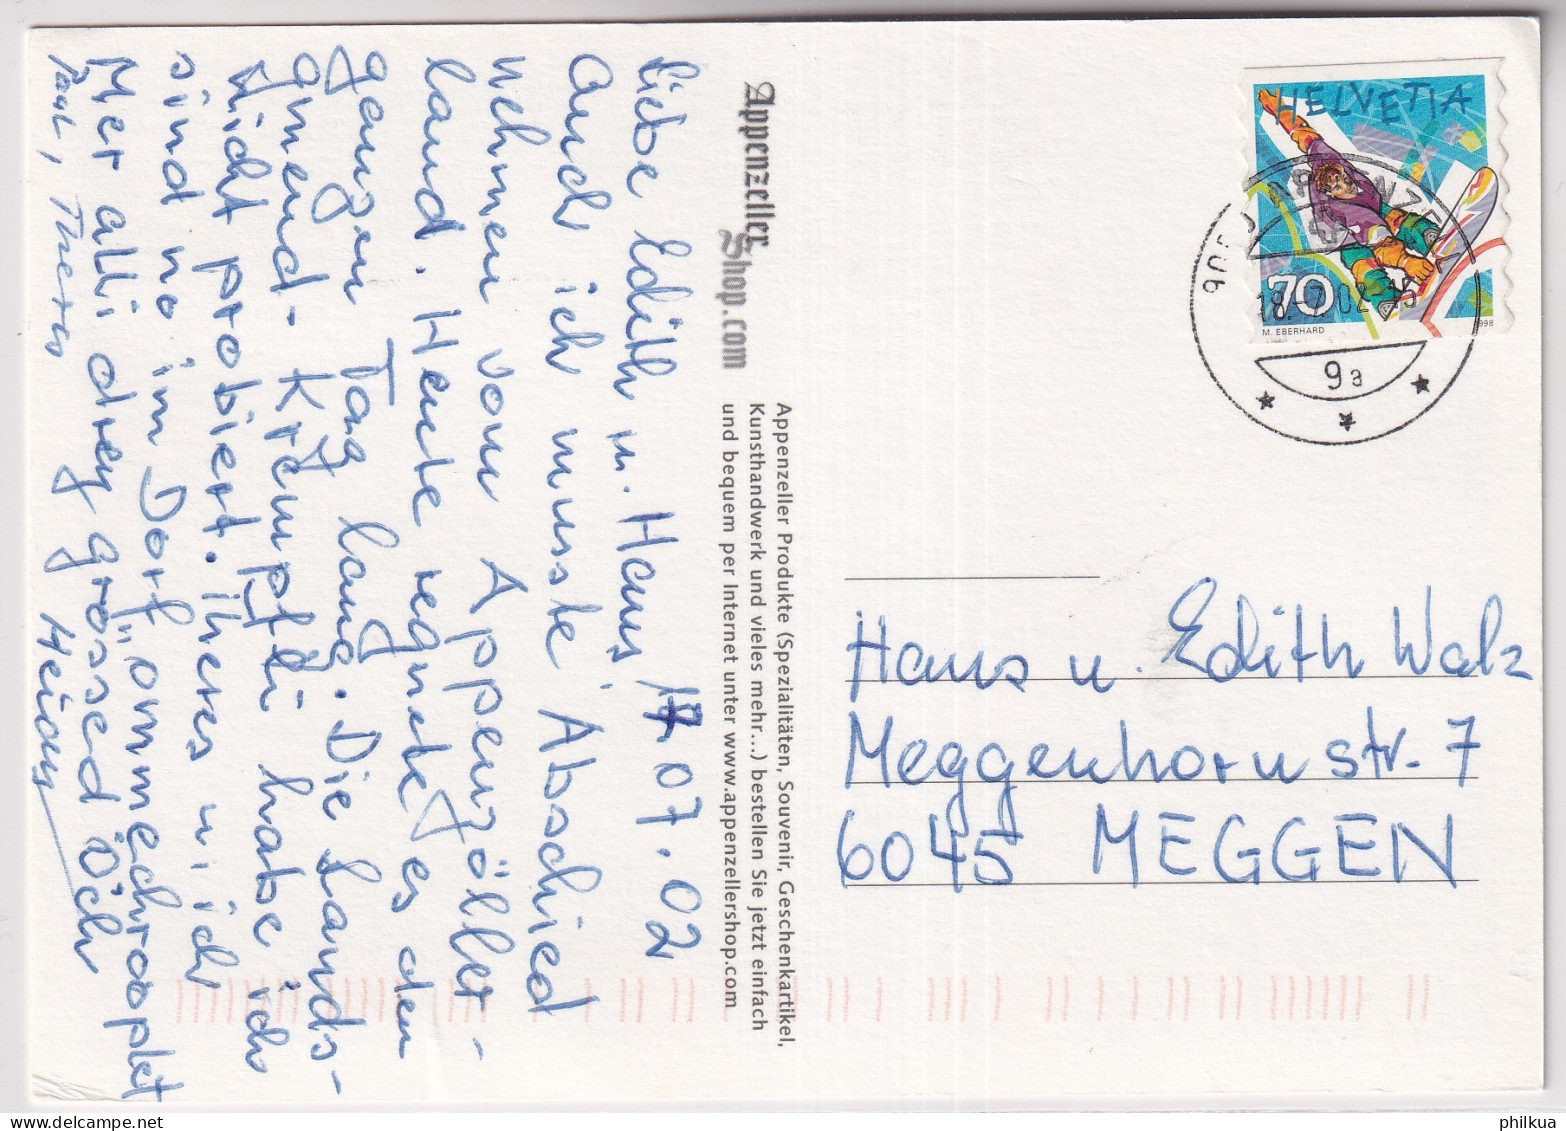 Liebe Edith u. Hans 17.07.02
Auch ich musste Abschied
nehmen vom Appenzöller-
land. Heute regnete es den
ganzen Tag lang. Die Lands-
gmend-Krempfli habe ich
nicht probiert. Theres u ich
sind no im Dorf
Mer alli drey grössed Öch
Paul, Theres Heidy
Appenzeller
Shop.com
Appenzeller Produkte (Spezialitäten, Souvenir, Geschenkartikel,
Kunsthandwerk und vieles mehr...) bestellen Sie jetzt einfach
und bequem per Internet unter www.appenzellershop.com
HELVETIA
70
M. EBERHARD 1998
9050 APPENZELL
18.-7.02-15
9a
Hans u. Edith Walz
Meggenhornstr. 7
6045 MEGGEN
philkua